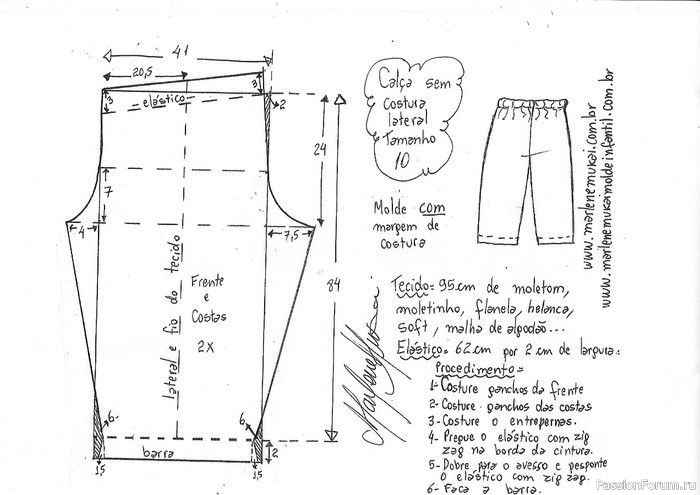 41
20,5
3
3
elástico
2
24
7
4
7,5
84
lateral e fio do tecido
Frente
e
Costas
2X
6
6
barra
2
1,5
1,5
Calça sem
costura
lateral
Tamanho
10
Molde com
margem de
costura
www.marlenemukai.com.br
www.marlenemukaimoldeinfantil.com.br
Tecido= 95cm de moletom,
moletinho, flanela, helanca,
soft, malha de algodão...
Elástico= 62cm por 2cm de largura.
Procedimento=
1- Costure ganchos da frente
2- Costure ganchos das costas
3- Costure o entrepernas.
4- Pregue o elástico com zig
zag na borda da cintura.
5- Dobre para o avesso e pesponte
o elástico com zig zag.
6- Faça a barra.
PassionForum.ru